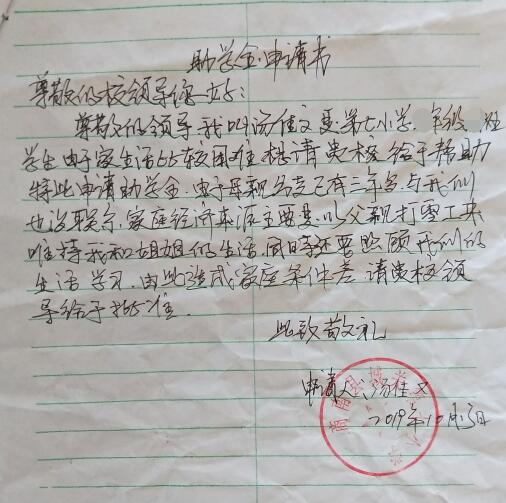 助学金申请书
尊敬的校领导您们好：
尊敬的领导我叫汤佳文是第七小学 年级 班
学生由于家生活比较困难想请贵校给于帮助
特此申请助学金.由于母亲 走已有三年多.与我们
也没联系.家庭经济来源主要是以父亲打零工来
唯持我和姐姐的生活.同时还要照顾我们的
生活学习.由此造成家庭条件差 请贵校领
导给于批准.
此致敬礼
申请人：汤佳文
2019年10月13日